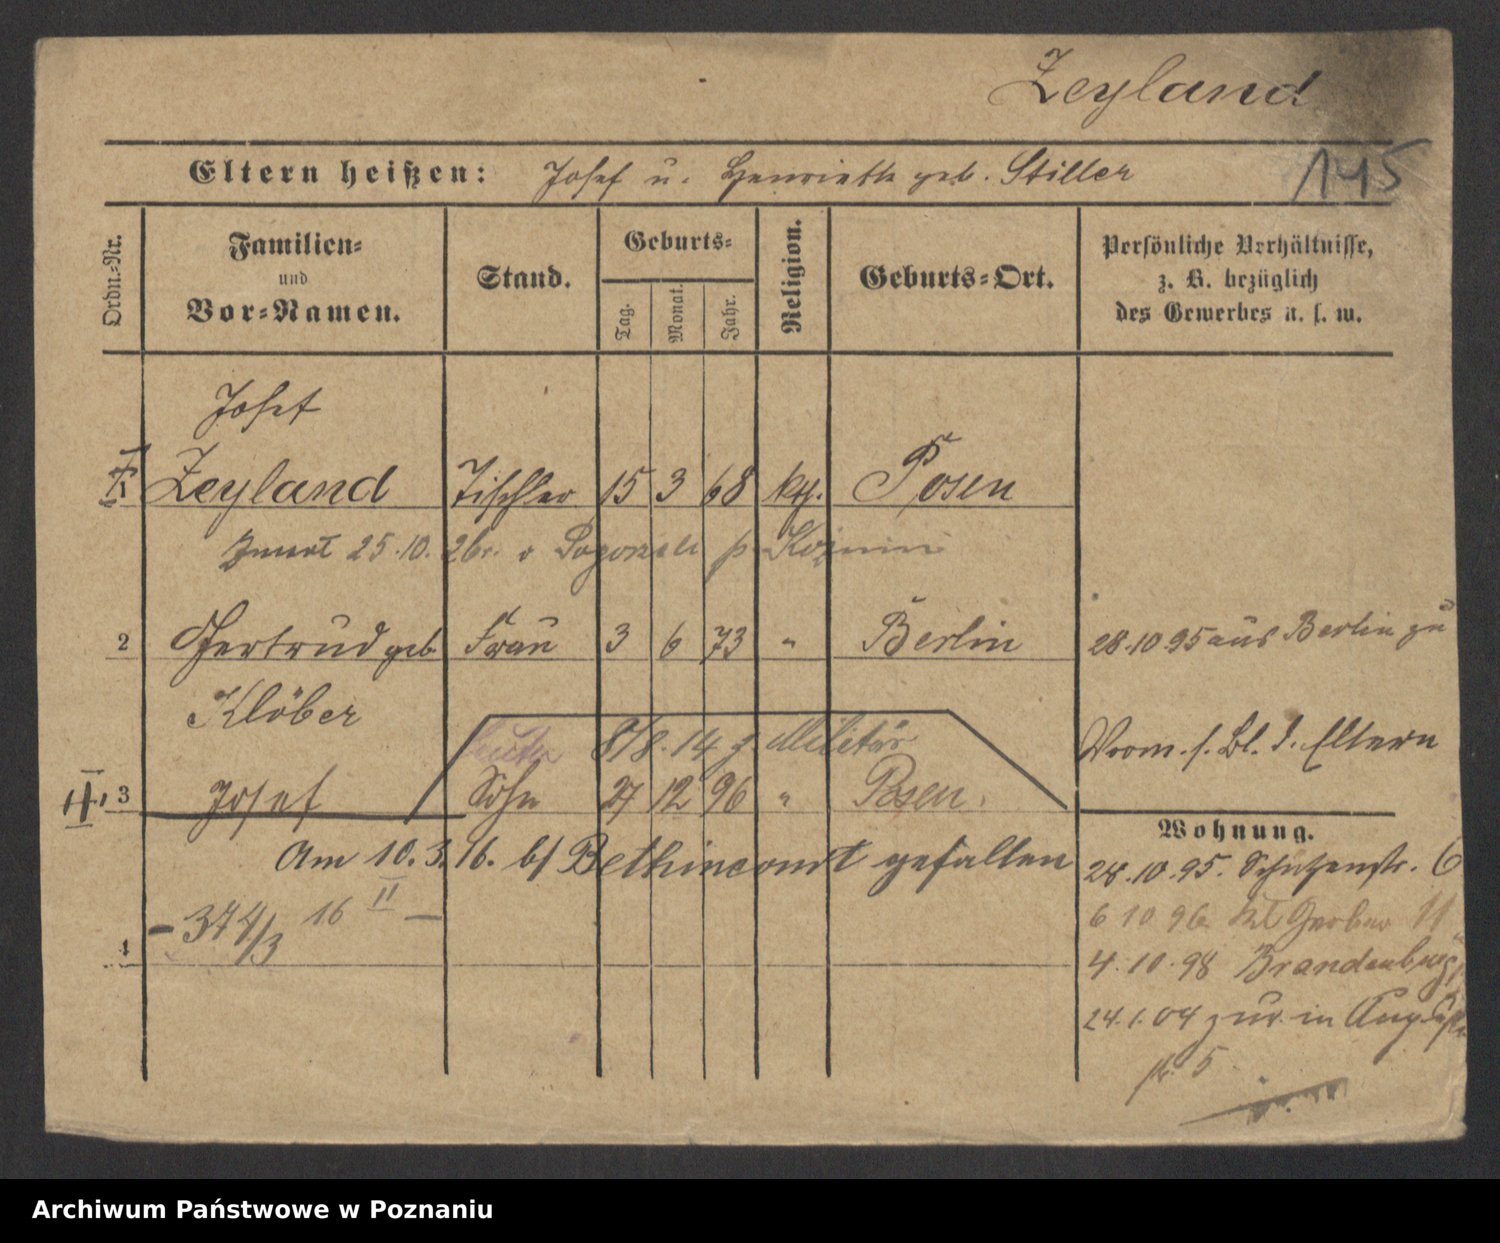 Zeyland
145
Eltern heißen: Josef u. Henriette geb. Stiller
Ordn.=Nr.
Familien=
und
Vor=Namen.
Stand.
Geburts=
Tag.
Monat.
Jahr.
Religion.
Geburts=Ort.
Persönliche Verhältnisse,
z. B. bezüglich
des Gewerbes u. s. w.
Josef
Zeyland Tischler 15 3 68 kth. Posen
25.10. 26 Pogorzeli p. Koźmin
2 Gertrud geb. Frau 3 6 73 " Berlin 28.10.95 aus Berlin zu
Klöber
8/8.14 z. Militär
Vorm. s. Bl. d. Eltern
II 3 Josef Sohn 27 12 96 " Posen.
Wohnung.
Am 10.3.16. b/ Bethincourt gefallen
28.10.95. Schützenstr. 6
- 374/3 16 II -
6 10 96 Kl Gerber 11
4
4.10.98 Brandenburg
24.1.04 zur. in
5